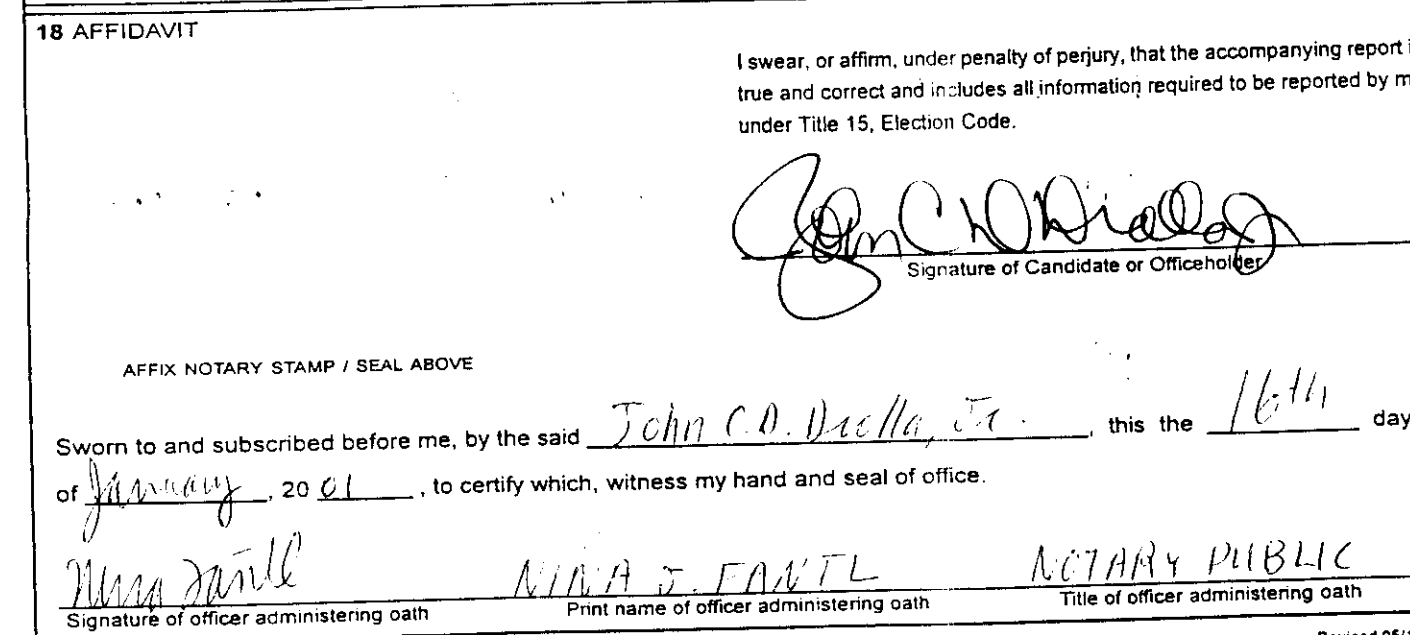 18 AFFIDAVIT
I swear, or affirm, under penalty of perjury, that the accompanying report
true and correct and includes all information required to be reported by m
under Title 15, Election Code.
John C
Signature of Candidate or Officeholder
AFFIX NOTARY STAMP / SEAL ABOVE
Sworn to and subscribed before me, by the said John C.D. Diolla, Jr. , this the 16th day
of January , 20 01 , to certify which, witness my hand and seal of office.
Nina Fantl NINA J. FANTL NOTARY PUBLIC
Signature of officer administering oath Print name of officer administering oath Title of officer administering oath